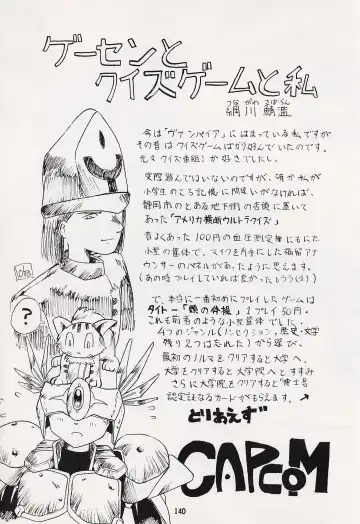 ゲーセンと
クイズゲームと私
網川鯖濫
つな がわ さばらん
今は「ヴァンパイア」にはまっている私ですが
その昔はクイズゲームばかり好んでいたのです。
元々クイズ番組が好きでしたし。
実際遊んではいないのですが、確か私が
小学生のころ記憶に間違いがなければ、
静岡市のとある地下街の店頭に置いて
あった「アメリカ横断ウルトラクイズ」
昔よくあった100円の血圧測定器にもにた
小型の筐体で、マイクを片手にした福留アナ
ウンサーのパネルがあったように思えます。
(あの時プレイしていれば良かったもううう)
で、本当に一番初めにプレイしたゲームは
タイトー「頭の体操」1プレイ50円。
これも前者のような小型筐体でした。
4つのジャンル(ノンセクション、歴史・文学
残り2つは忘れた)から選び、
最初のノルマをクリアすると大学へ、
大学をクリアすると大学院へとすすみ
さらに大学院をクリアすると博士号
認定証なるカードがもらえます。→
?
どりあえず
CAPCOM
140